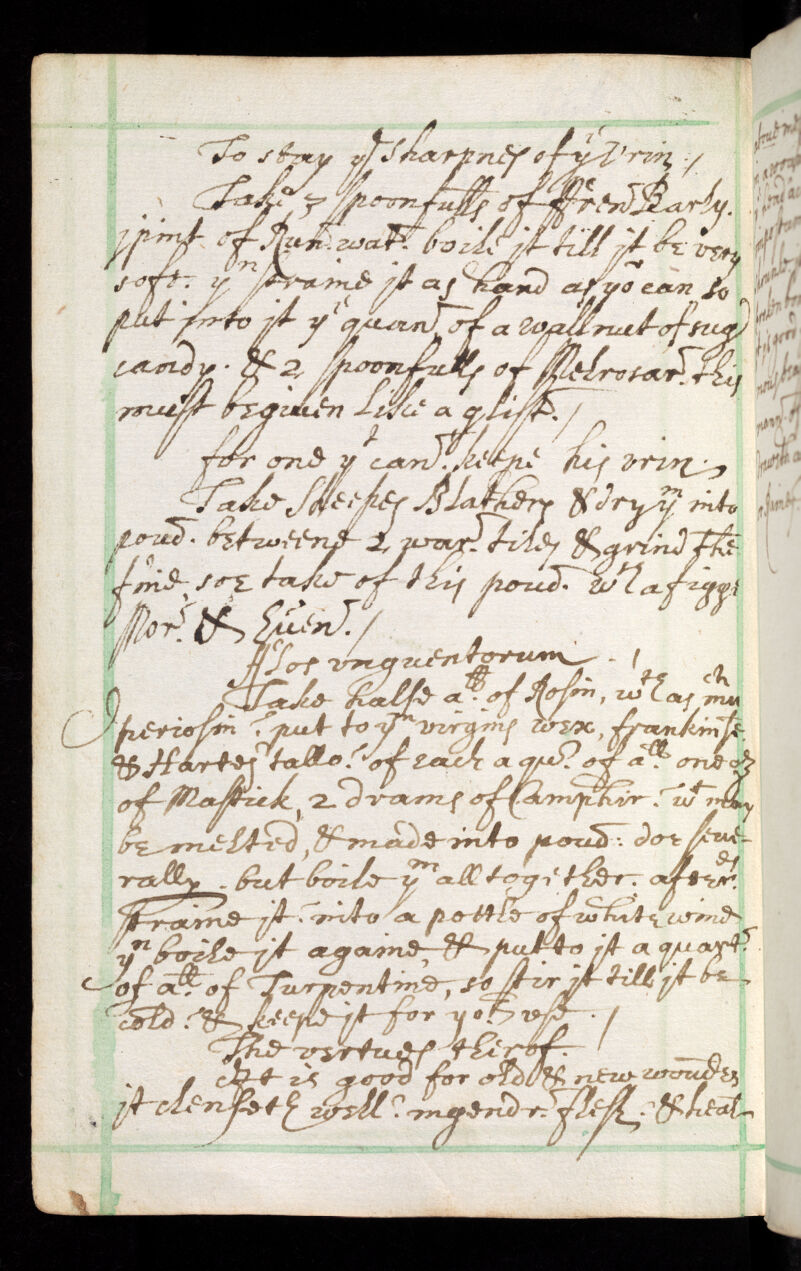 To stay ye sharpnes of ye Vrin /
Take 3 spoonfulls of ffren Barly.
j pint of Run. wat. boile jt till jt be very
soft. yn straine jt as hard as yo can so
put into jt ye quan of a wallnut of sug
candy. & 2 spoonfulls of Melrosar. this
must be given Like a glist. /
for one yt can. keepe his vrin.
Take Sheepes Blathers & dry ym into
poud. betweene 2 war. tiles & grind the
fine, soe take of this poud. wth a figge
Mor. & Euen. /
fflos vnguentorum . /
Take halfe a ll. of Rosin, as mch
periosin. put to ym virgins wex, frankinse
& Hartes tallo. of each a qu. of a ll. one oz
of Mastick, 2 drams of Camphir. wt may
be melted, & made into poud: doe seue-
rally. but boile ym all together. after.
straine jt. into a pottle of white wine
yn boile jt againe, & put to jt a quart.
of a ll. of Turpentine, so stir jt till jt be
cold. & keepe jt for yor vse. /
The vertues therof.
It is good for old & new woundes
jt clenseth well. ingendr. flesh. & heal